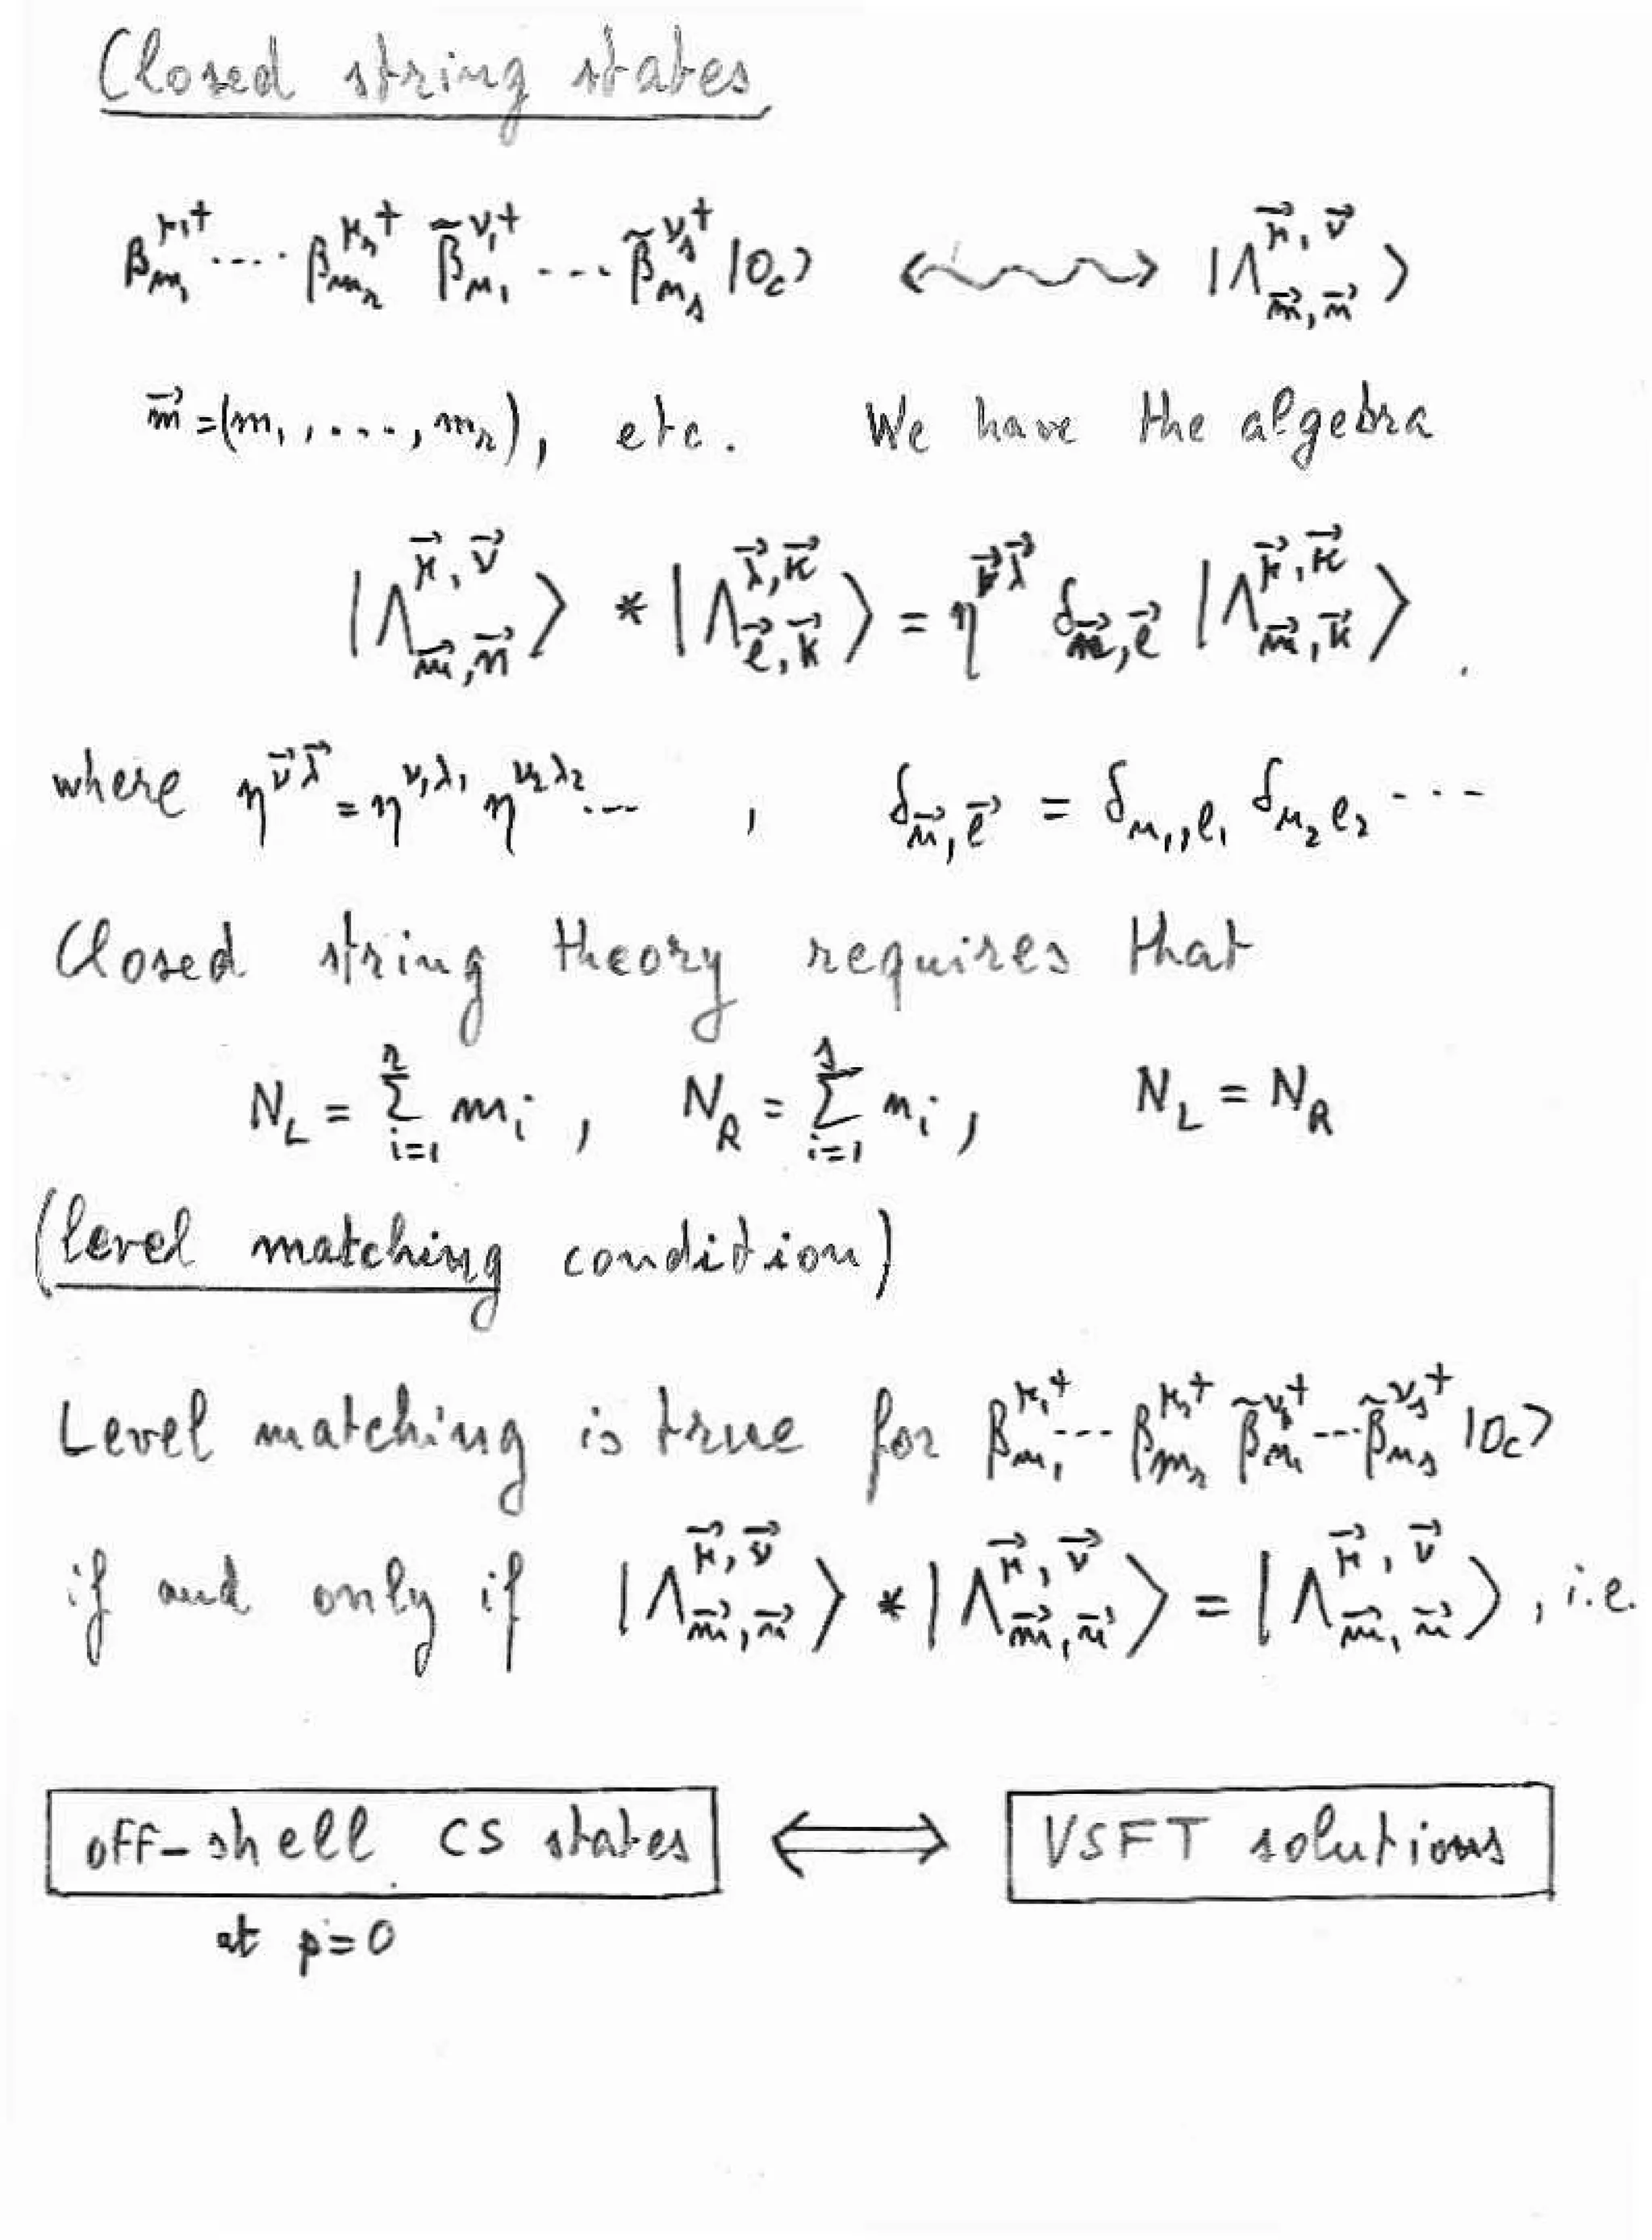 Closed string states
β_{m_1}^{μ_1 †} .... β_{m_r}^{μ_r †} β̃_{n_1}^{ν_1 †} .... β̃_{n_s}^{ν_s †} |0_c⟩ ⟷ |Λ_{m⃗,n⃗}^{μ⃗,ν⃗}⟩
m⃗ = (m_1, ...., m_r), etc. We have the algebra
|Λ_{m⃗,n⃗}^{μ⃗,ν⃗}⟩ * |Λ_{ℓ⃗,k⃗}^{λ⃗,κ⃗}⟩ = η^{ν⃗λ⃗} δ_{n⃗,ℓ⃗} |Λ_{m⃗,k⃗}^{μ⃗,κ⃗}⟩.
where η^{ν⃗λ⃗} = η^{ν_1λ_1} η^{ν_2λ_2}... , δ_{n⃗,ℓ⃗} = δ_{n_1,ℓ_1} δ_{n_2ℓ_2} ...
Closed string theory requires that
N_L = Σ_{i=1}^{r} m_i , N_R = Σ_{i=1}^{s} n_i , N_L = N_R
(level matching condition)
Level matching is true for β_{m_1}^{μ_1 †} ... β_{m_r}^{μ_r †} β̃_{n_1}^{ν_1 †} ... β̃_{n_s}^{ν_s †} |0_c⟩
if and only if |Λ_{m⃗,n⃗}^{μ⃗,ν⃗}⟩ * |Λ_{m⃗,n⃗}^{μ⃗,ν⃗}⟩ = |Λ_{m⃗,n⃗}^{μ⃗,ν⃗}⟩ , i.e.
off-shell CS states ⟺ VSFT solutions
at p=0